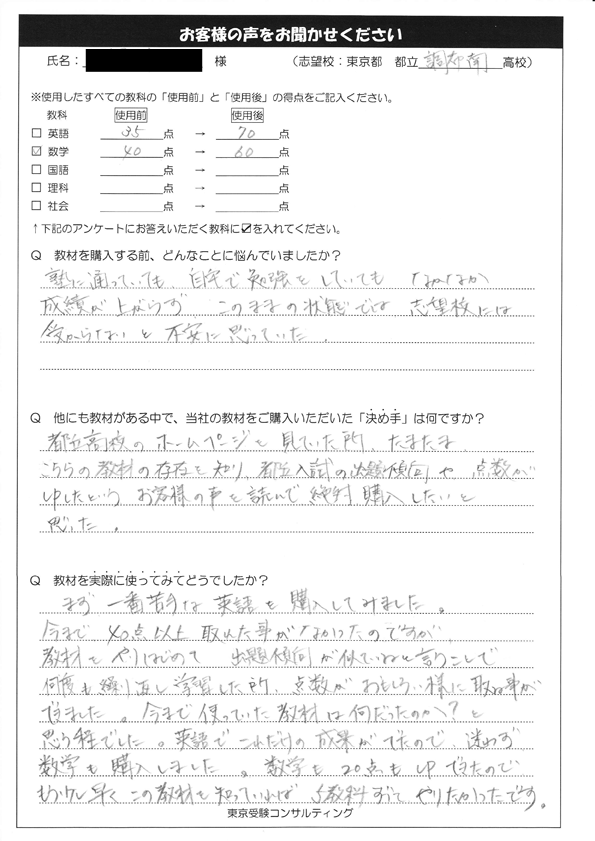 お客様の声をお聞かせください
氏名： 様 （志望校：東京都 都立 調布南 高校）
※使用したすべての教科の「使用前」と「使用後」の得点をご記入ください。
教科 使用前 使用後
□ 英語 35 点 → 70 点
☑ 数学 40 点 → 60 点
□ 国語 点 → 点
□ 理科 点 → 点
□ 社会 点 → 点
↑下記のアンケートにお答えいただく教科に☑を入れてください。
Q 教材を購入する前、どんなことに悩んでいましたか？
塾に通っていても、自宅で勉強をしていても なかなか
成績が上がらず このままの状態では 志望校には
受からないと 不安に思っていた。
Q 他にも教材がある中で、当社の教材をご購入いただいた「決め手」は何ですか？
都立高校のホームページを見ていた所、たまたま
こちらの教材の存在を知り、都立入試の出題傾向や 点数が
UPしたという お客様の声を読んで 絶対 購入したいと
思った。
Q 教材を実際に使ってみてどうでしたか？
まず 一番苦手な 英語を購入してみました。
今まで 40点以上 取れた事がなかったのですが、
教材をやりはじめて 出題傾向が似ているねと言うことで
何度も繰り返し学習した所、点数がおもしろい様に取れる事が
できました。今まで使っていた教材は何だったのか？と
思う程でした。英語でこれだけの成果がでたので 迷わず
数学も購入しました。数学も20点もUPできたので
もう少し早くこの教材を知っていれば 5教科すべて やりたかったです。
東京受験コンサルティング